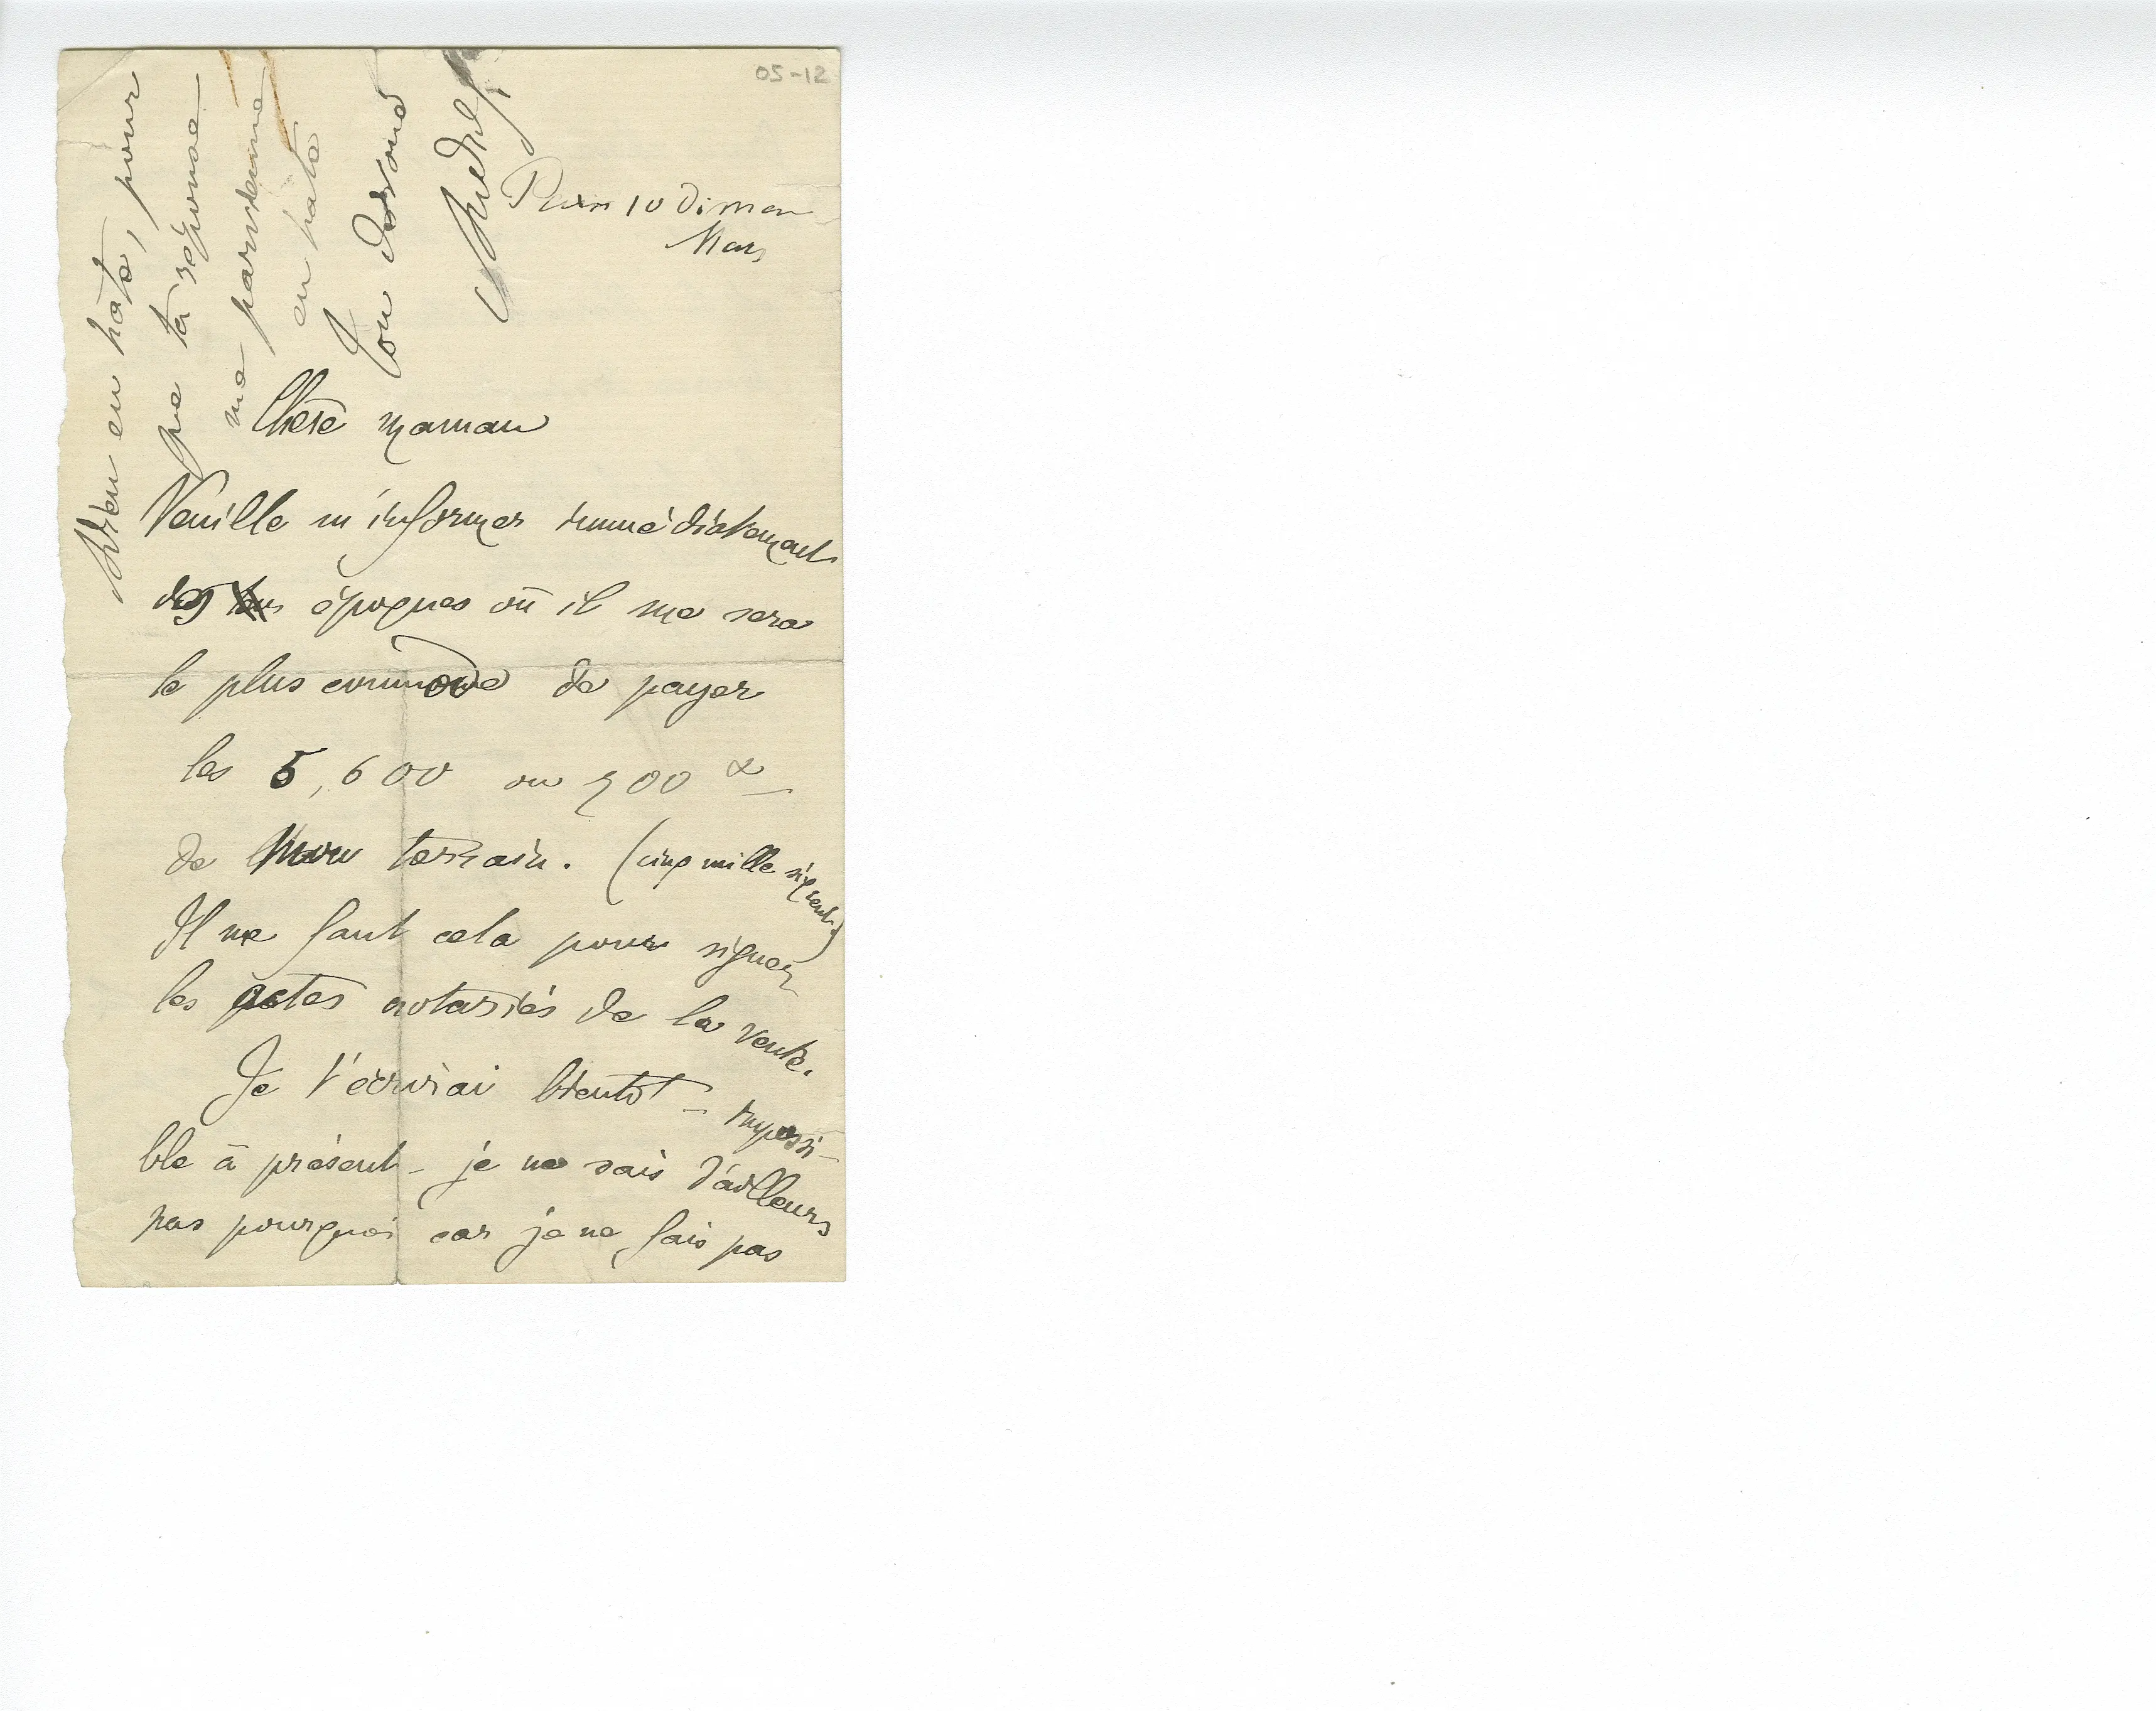 05-12
10 Diman
Mars
Chère maman
Veuille m'informer immédiatement
des époques où il me sera
le plus commode de payer
les 5,600 ou 700
de Mon terrain. (cinq mille six cent)
Il me faut cela pour signer
les actes notariés de la vente.
Je t'écrirai bientôt - impossi-
ble à présent - je ne sais d'ailleurs
pas pourquoi car je ne fais pas
Adieu en hâte, pour
que ta réponse
me parvienne
en hâte
Ton dévoué